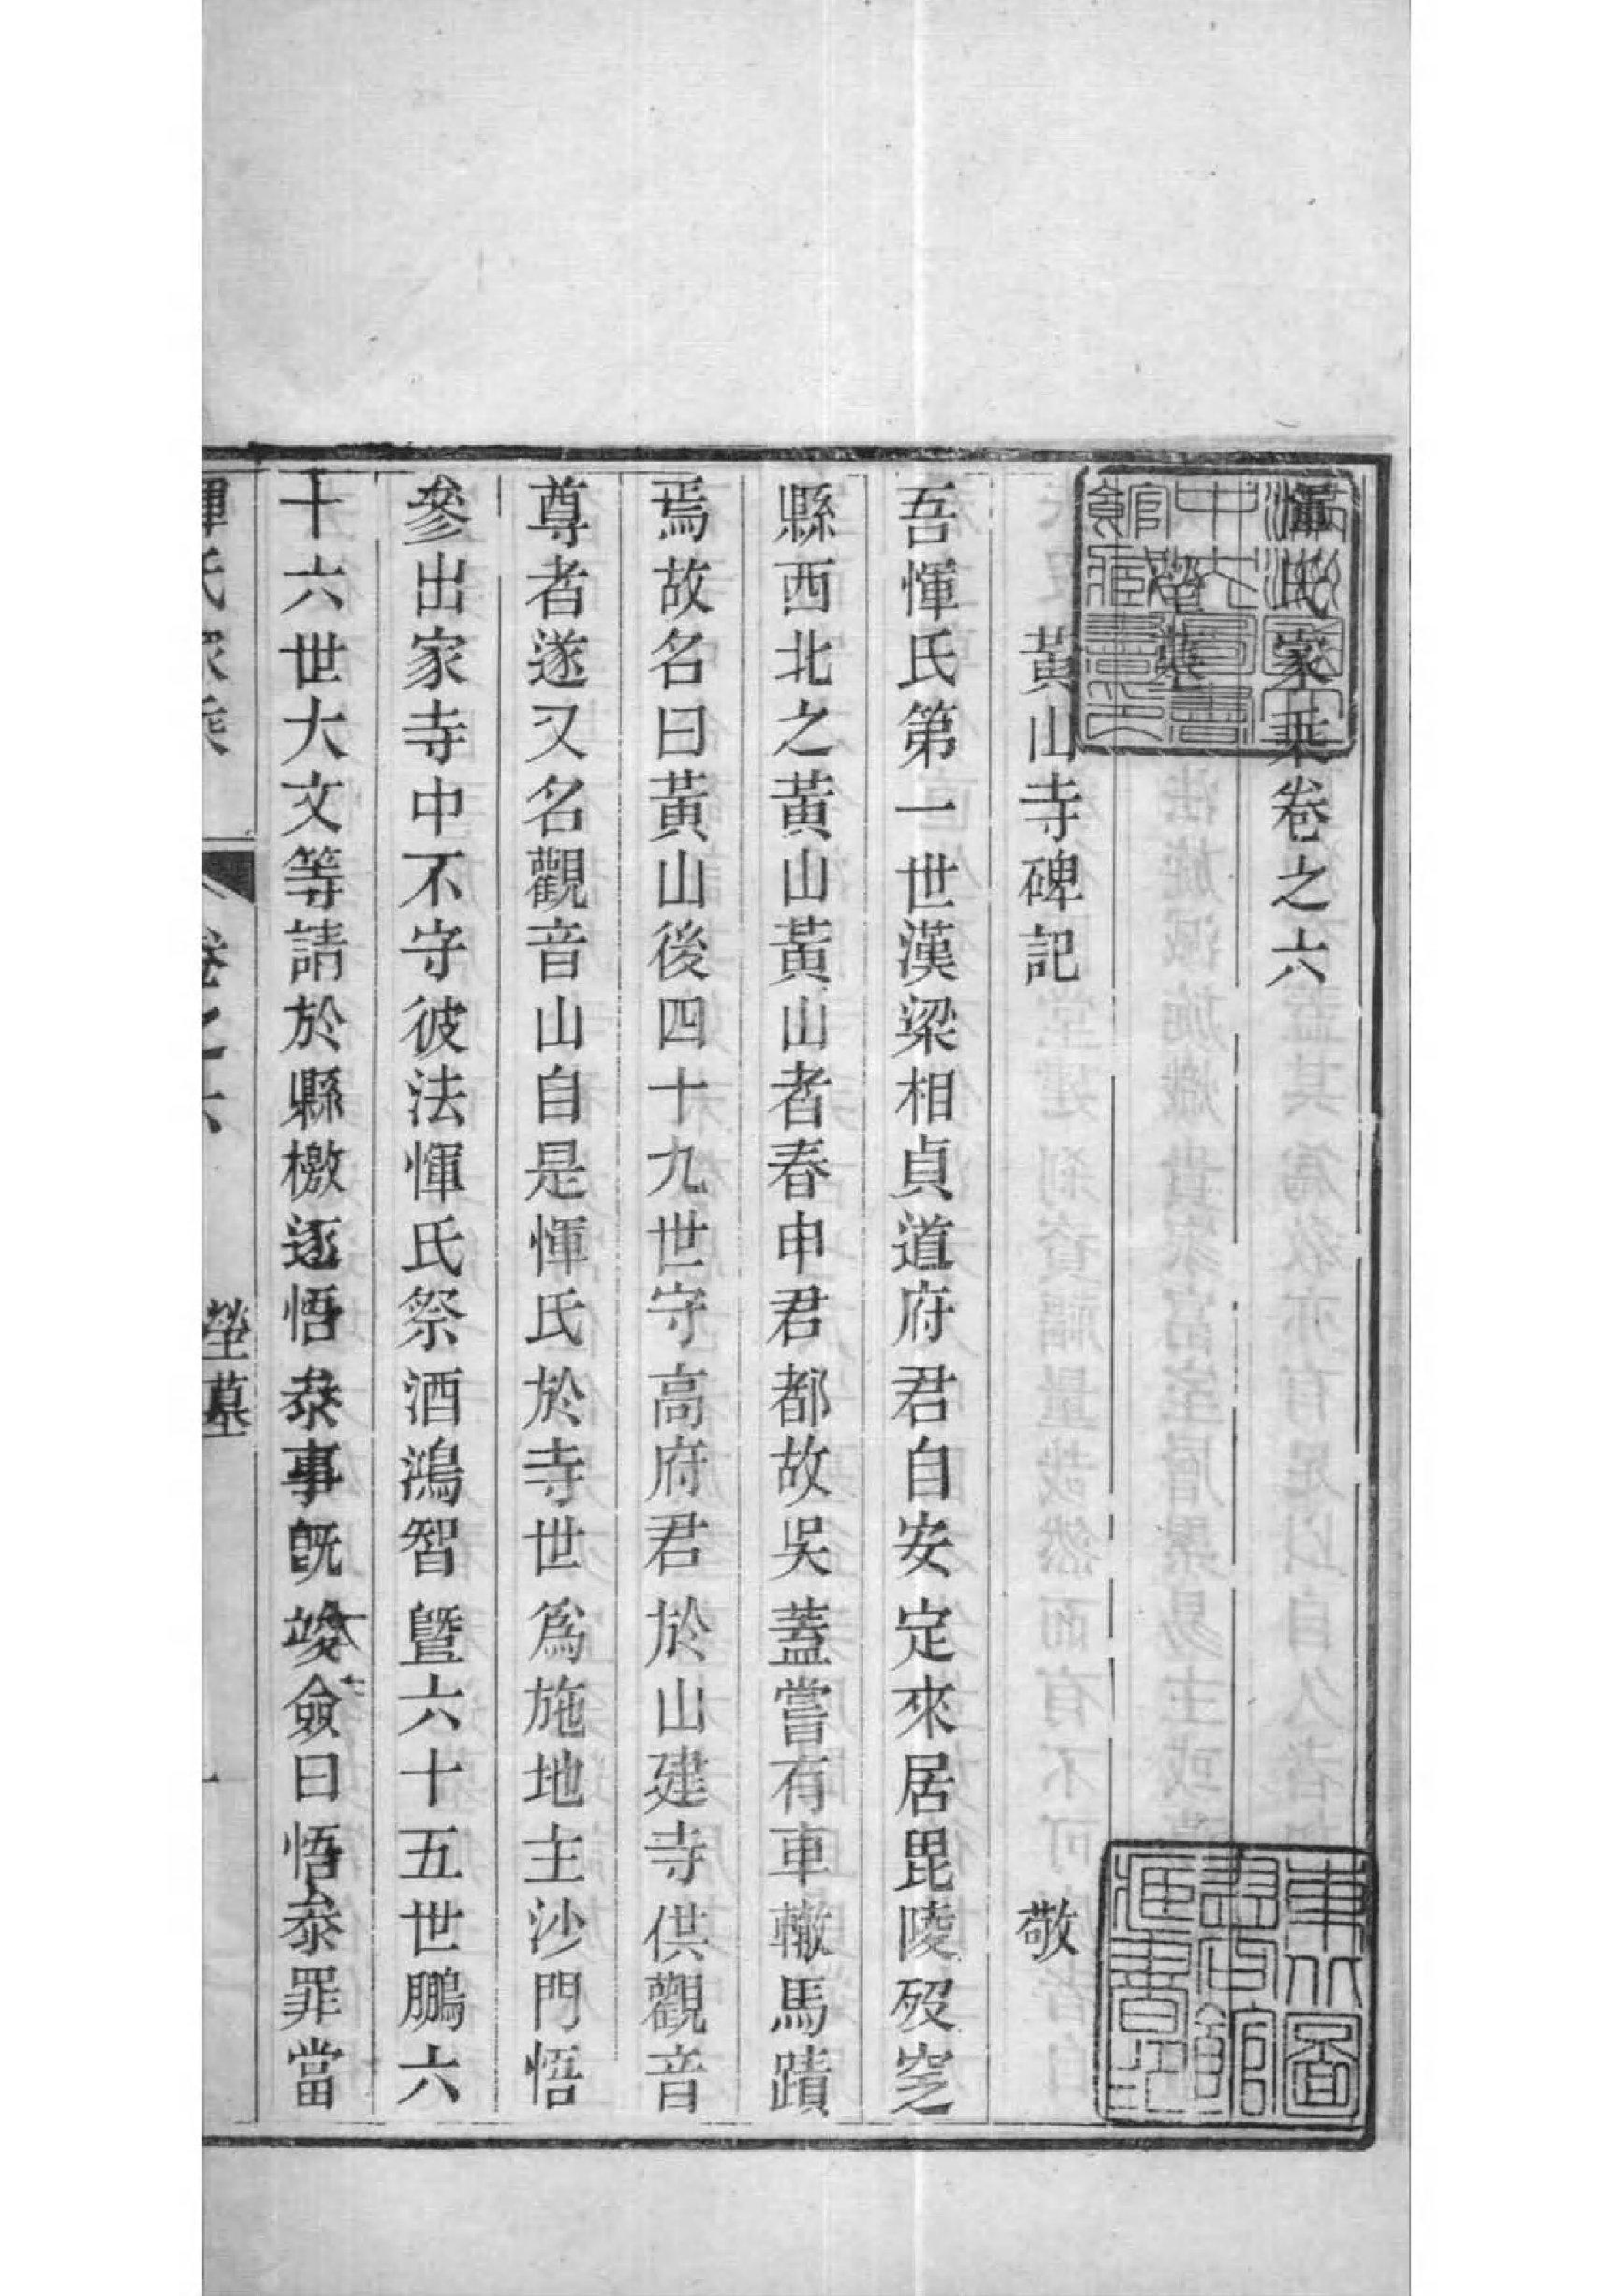 惲氏家乘卷之六
塋墓
黃山寺碑記　敬
吾惲氏第一世漢梁相貞道府君自安定來居毘陵歿窆
縣西北之黃山黃山者春申君都故吳蓋嘗有車轍馬蹟
焉故名曰黃山後四十九世守高府君於山建寺供觀音
尊者遂又名觀音山自是惲氏於寺世爲施地主沙門悟
參出家寺中不守彼法惲氏祭酒鴻智曁六十五世鵬六
十六世大文等請於縣檄逐悟叅事旣竣僉曰悟叅罪當
惲氏家乘
卷之六
塋墓
一